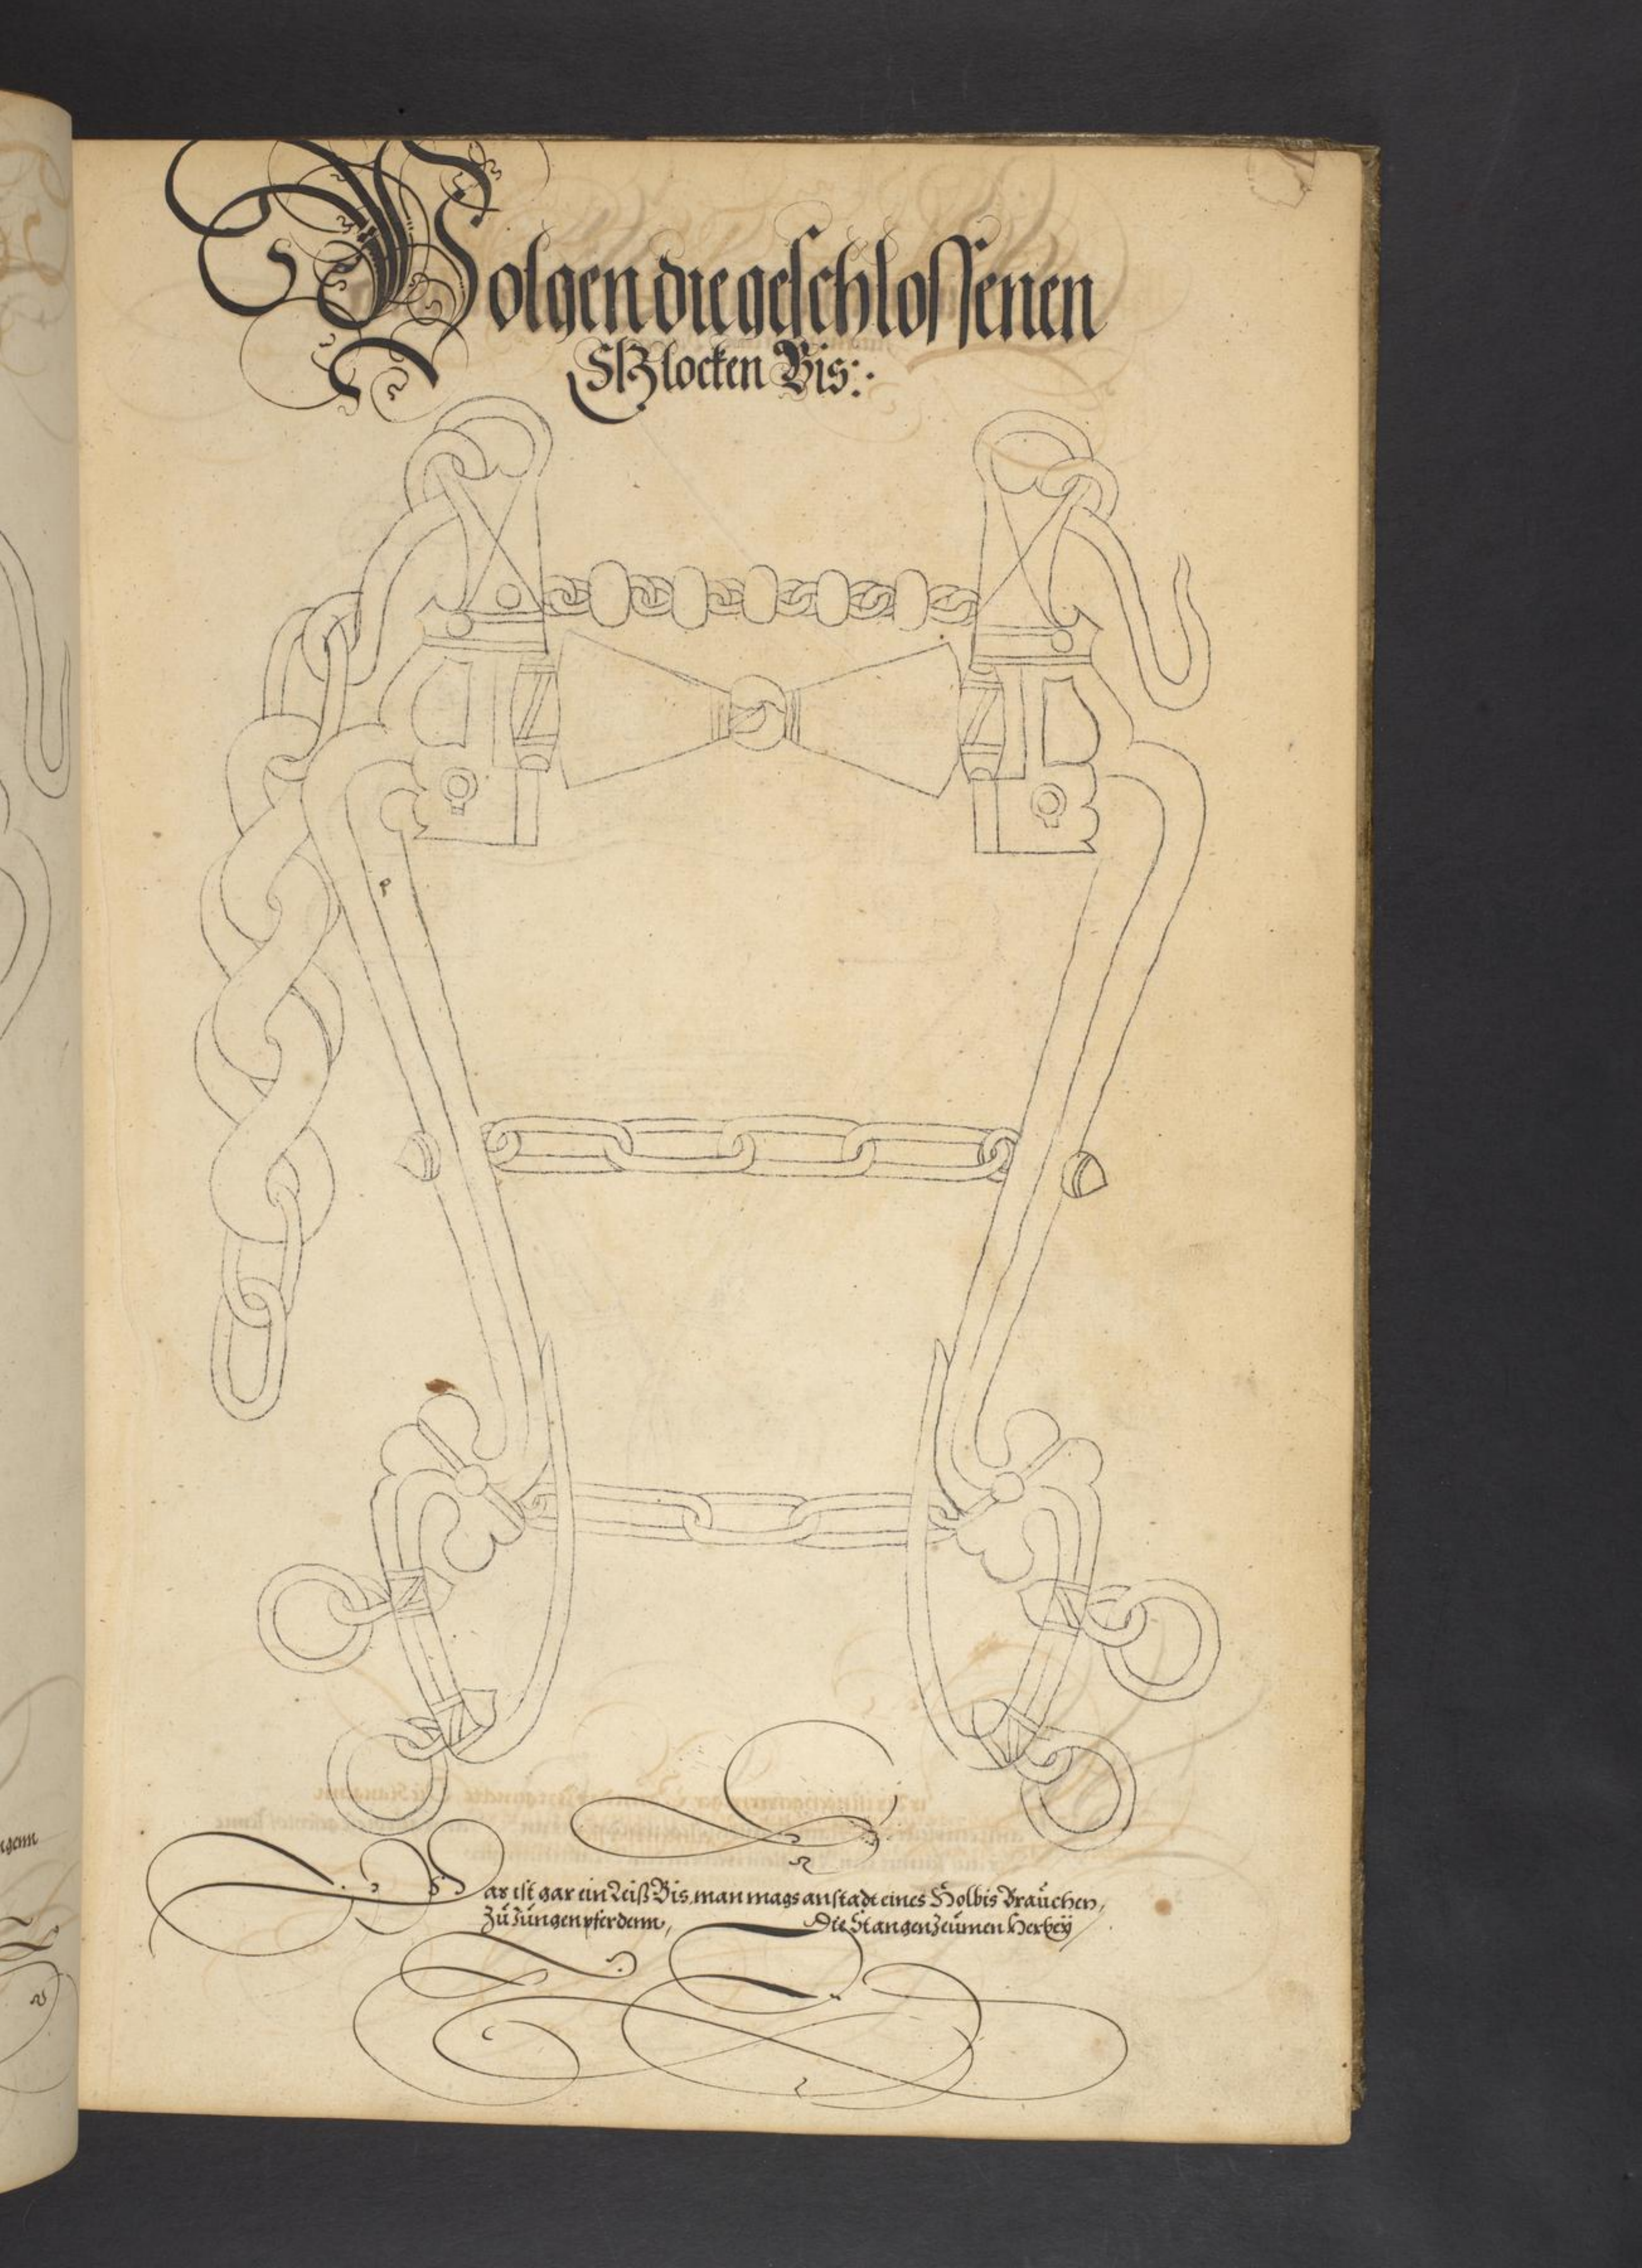 Volgen die geschlossenen
Glocken Bis:
Das ist gar ein Leiß Bis, man mags anstadt eines Holbis Braüchen,
Zü Jüngen pferdenn, Die Stangen Zeümen Herbeÿ
genn